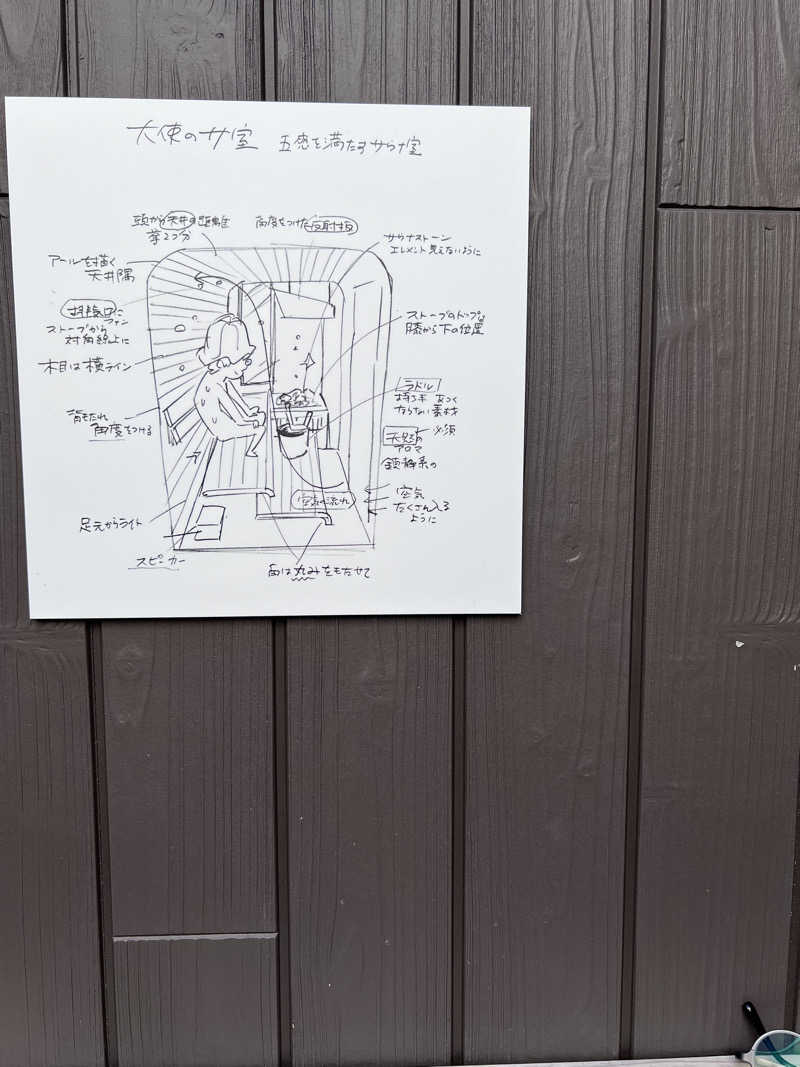 大使のサ室 五感を満たすサウナ室
頭から天井の距離
拳2つ分
角度をつけた反射板
サウナストーン
エレメント見えないように
アールを描く
天井隅
ファン
ストーブから
対角線上に
ストーブのトップは
膝から下の位置
木目は横ライン
ラドル
持つ手 あつく
ならない素材
背もたれ
角度をつける
天然の 必須
アロマ
鎮静系の
空気の流れ
空気
たくさん入る
ように
足元からライト
スピーカー
角は丸みをもたせて